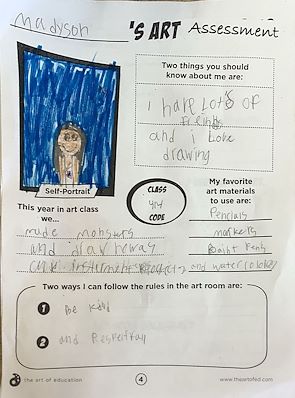 Madyson 'S ART Assessment
Two things you should
know about me are:
i have Lots of
Freinds
and i Love
drawing
Self-Portrait
CLASS
CODE
My favorite
art materials
to use are:
Pencials
markers
Paint
This year in art class
we...
made mobsters
and
and and watercolor
Two ways I can follow the rules in the art room are:
1 Be kind
2 and Respectfull
the art of education
4
www.theartofed.com